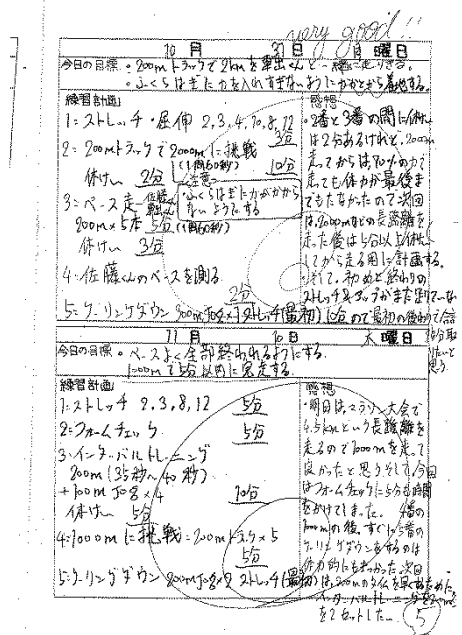 very good!!
10月 31日 月曜日
今日の目標 ・200mトラックで2kmを
・ふくらはぎに力を入れすぎないようにかかとから着地する。
練習計画
1=ストレッチ・屈伸 2,3,4,10,8,12 3分
2=200mトラックで2000mに挑戦 10分
(1周60秒)
休けい 2分
注意
・ふくらはぎに力がかからないようにする
3=ペース走
200m×5本 5分 (1周60秒)
休けい 3分
4=佐藤くんのペースを測る
2分
5=クーリングダウン ストレッチ(最初) 10分
感想
・2番と3番の間に休けい
は2分あるけれど、2000m
走ってからは80%の力で
走っても体力が最後ま
でもたなかったので次回
は2000mなどの長距離を
走った後は5分以上休けい
してから走る用に計画する。
そして、初めと終わりの
11月 10日 木曜日
今日の目標 ・ペースよく全部終われるようにする。
1000mで5分以内に完走する。
練習計画
1=ストレッチ 2,3,8,12 5分
2=フォームチェック 5分
3=インターバルトレーニング
200m(35秒～40秒)
+100m JOG×4 10分
休けい 5分
4=1000mに挑戦=200mトラック×5
5分
5=クーリングダウン 200mJOG×2 ストレッチ(最初)
感想
・明日は、マラソン大会で
4.5kmという長距離を
走るので1000mを走って
良かったと思うそして、今回
はフォームチェックに5分も時間
をかけてしまった。4番の
1000mの後、すぐに5番の
クーリングダウンをするのは
体力的にもきつかった。次回
は、200mのタイムを早くするために
インターバルトレーニング
をセットした。
5